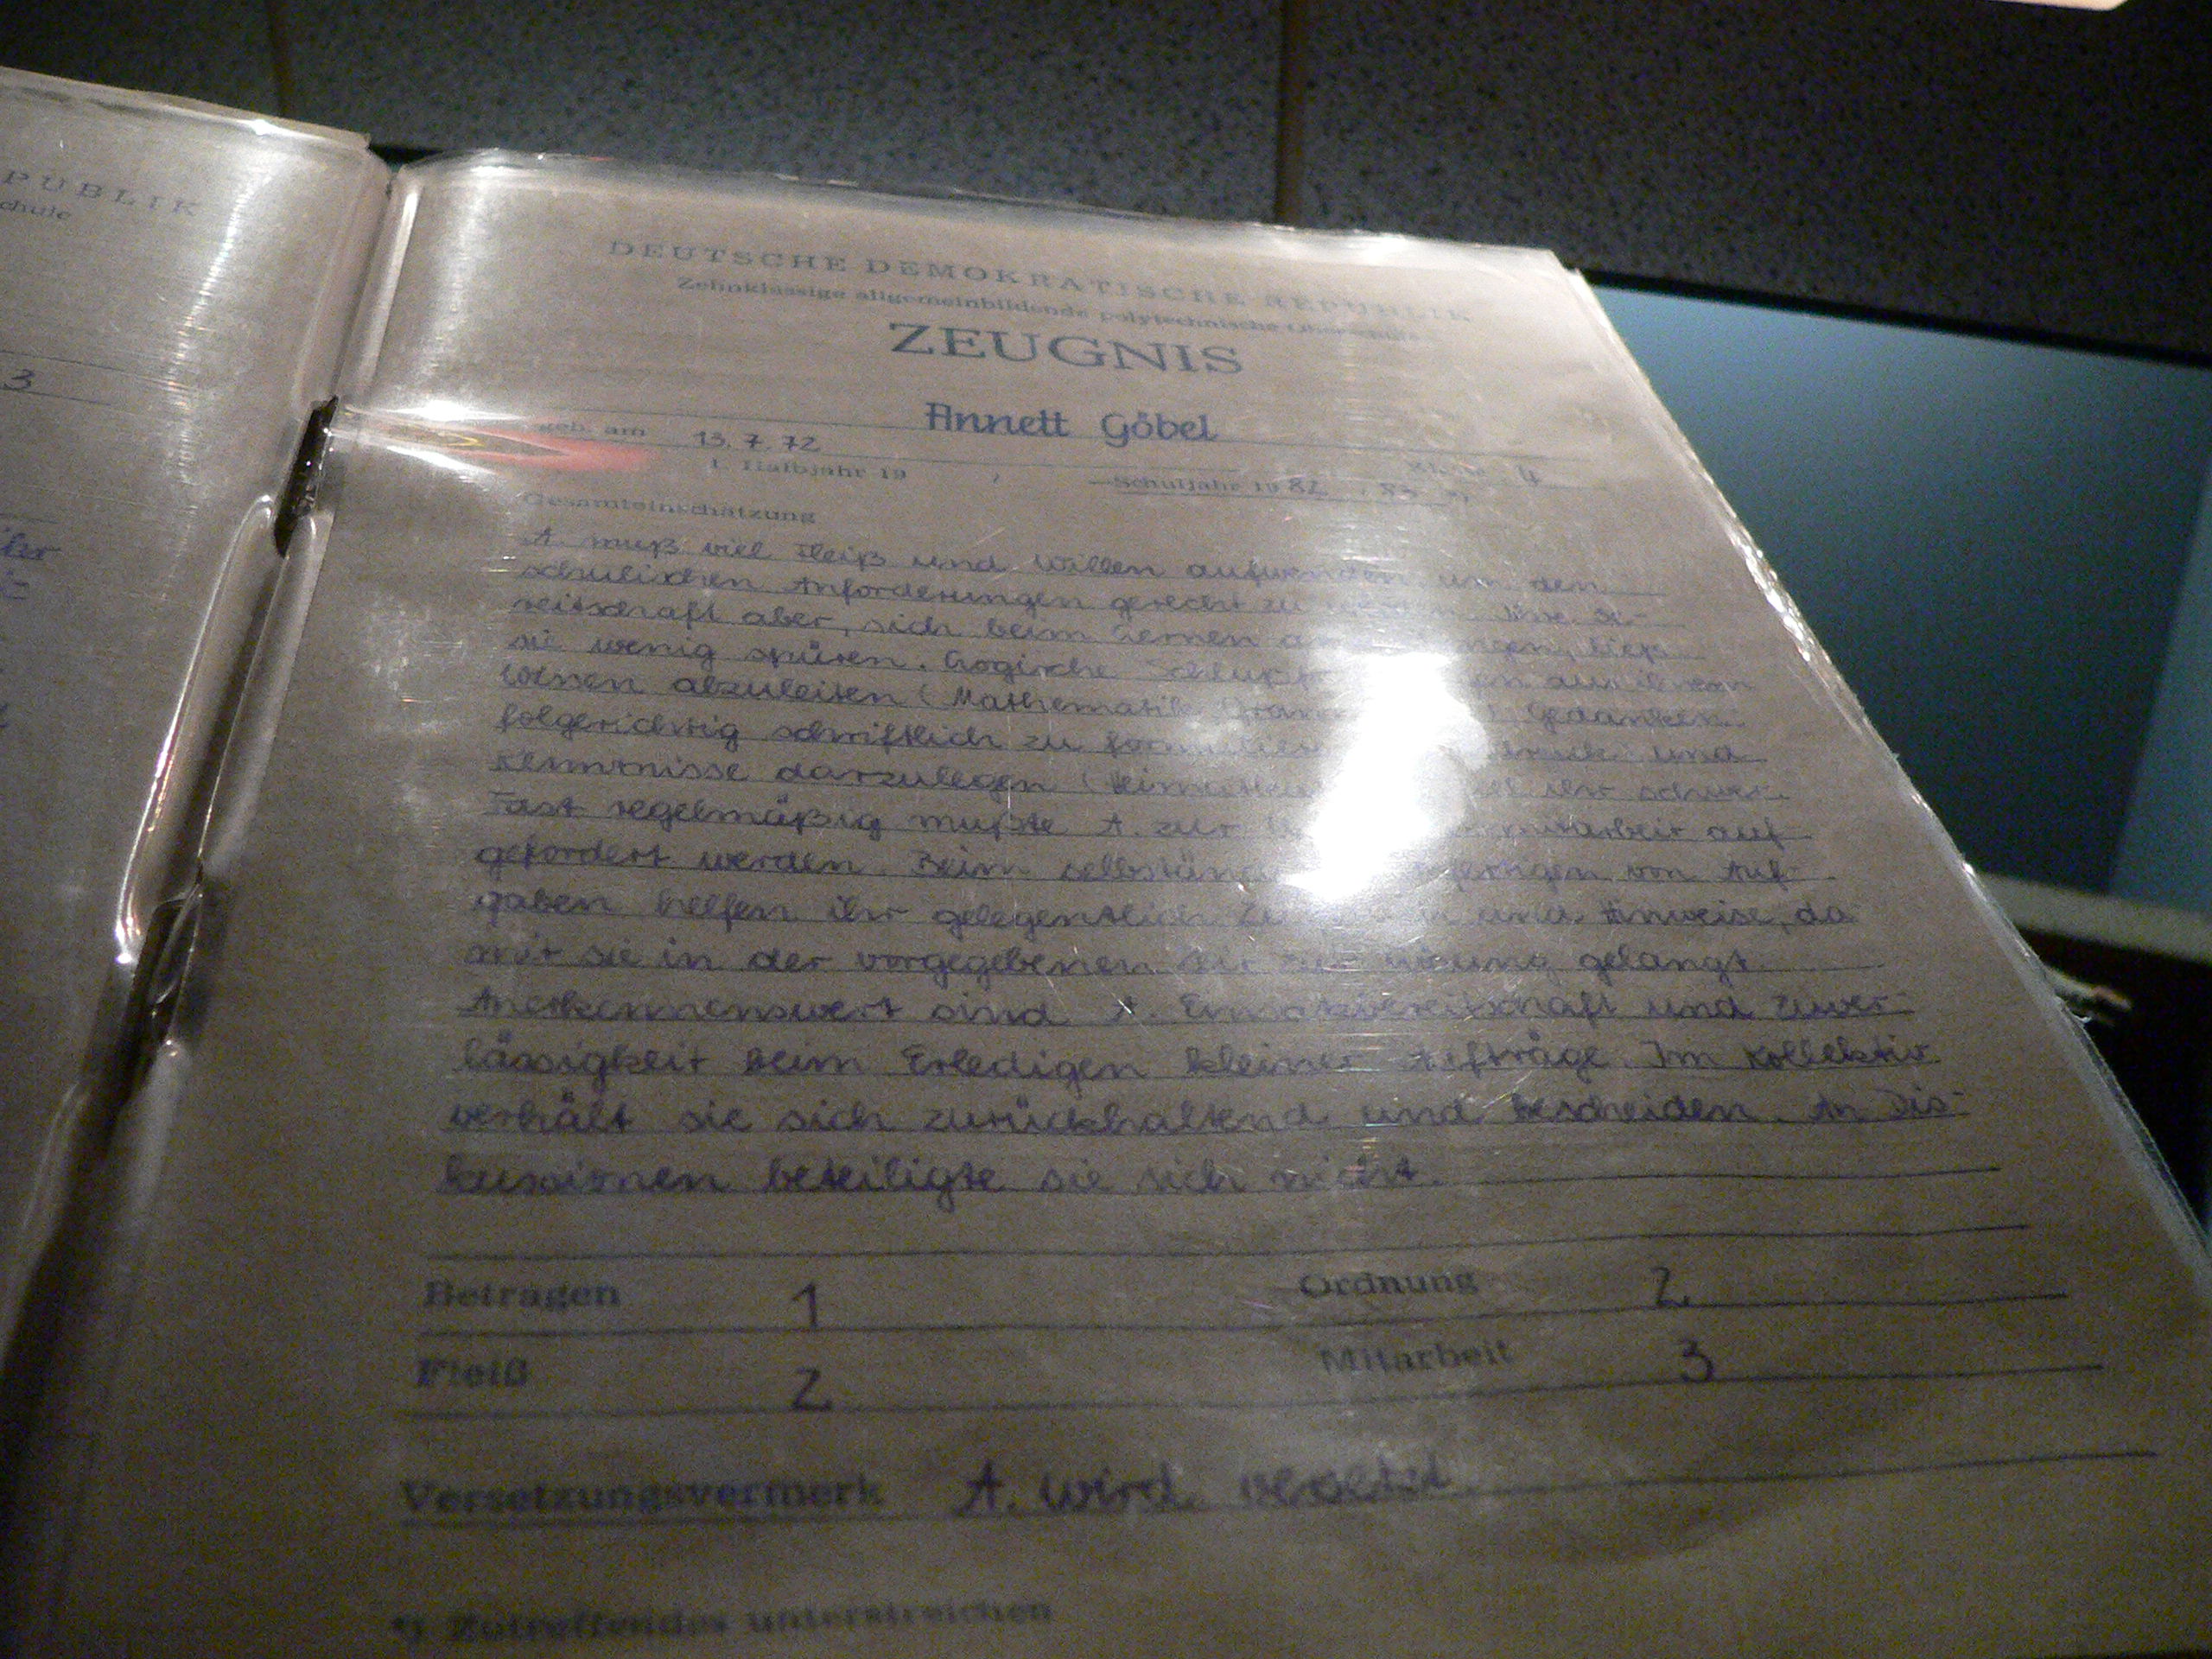 PUBLIK
chule
3
DEUTSCHE DEMOKRATISCHE REPUBLIK
Zehnklassige allgemeinbildende polytechnische Oberschule
ZEUGNIS
Annett Göbel
geb. am 13. 7. 72
1. Halbjahr 19 , Schuljahr 1982 / 83 *) Klasse 4
Gesamteinschätzung
A. muß viel Fleiß und Willen aufwenden um den
schulischen Anforderungen gerecht zu werden. Ihre Be-
reitschaft aber, sich beim Lernen anzustrengen, ließ
sie wenig spüren. Logische aus ihrem
Wissen abzuleiten (Mathematik, Gedanken
folgerichtig schriftlich zu und
Kenntnisse darzulegen ( ihr schwer.
Fast regelmäßig mußte A. zur auf
gefordert werden. Beim von Auf-
gaben helfen ihr gelegentlich und Hinweise, da
mit sie in der vorgegebenen Zeit zur Lösung gelangt
Anerkennenswert sind A. Einsatzbereitschaft und Zuver-
lässigkeit beim Erledigen kleiner Aufträge. Im Kollektiv
verhält sie sich zurückhaltend und bescheiden. An Dis-
kussionen beteiligte sie sich nicht.
Betragen 1 Ordnung 2
Fleiß 2 Mitarbeit 3
Versetzungsvermerk A. wird versetzt
*) Zutreffendes unterstreichen